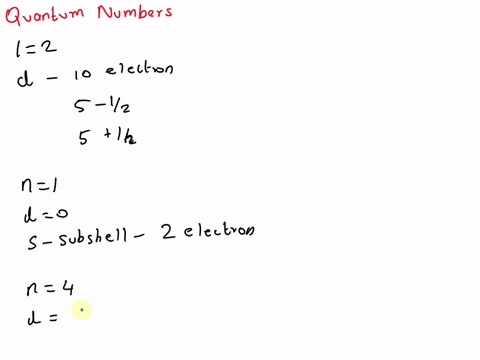 Quantum Numbers
l=2
d - 10 electron
5 -1/2
5 +1/2
n=1
l=0
s-subshell - 2 electron
n=4
l=